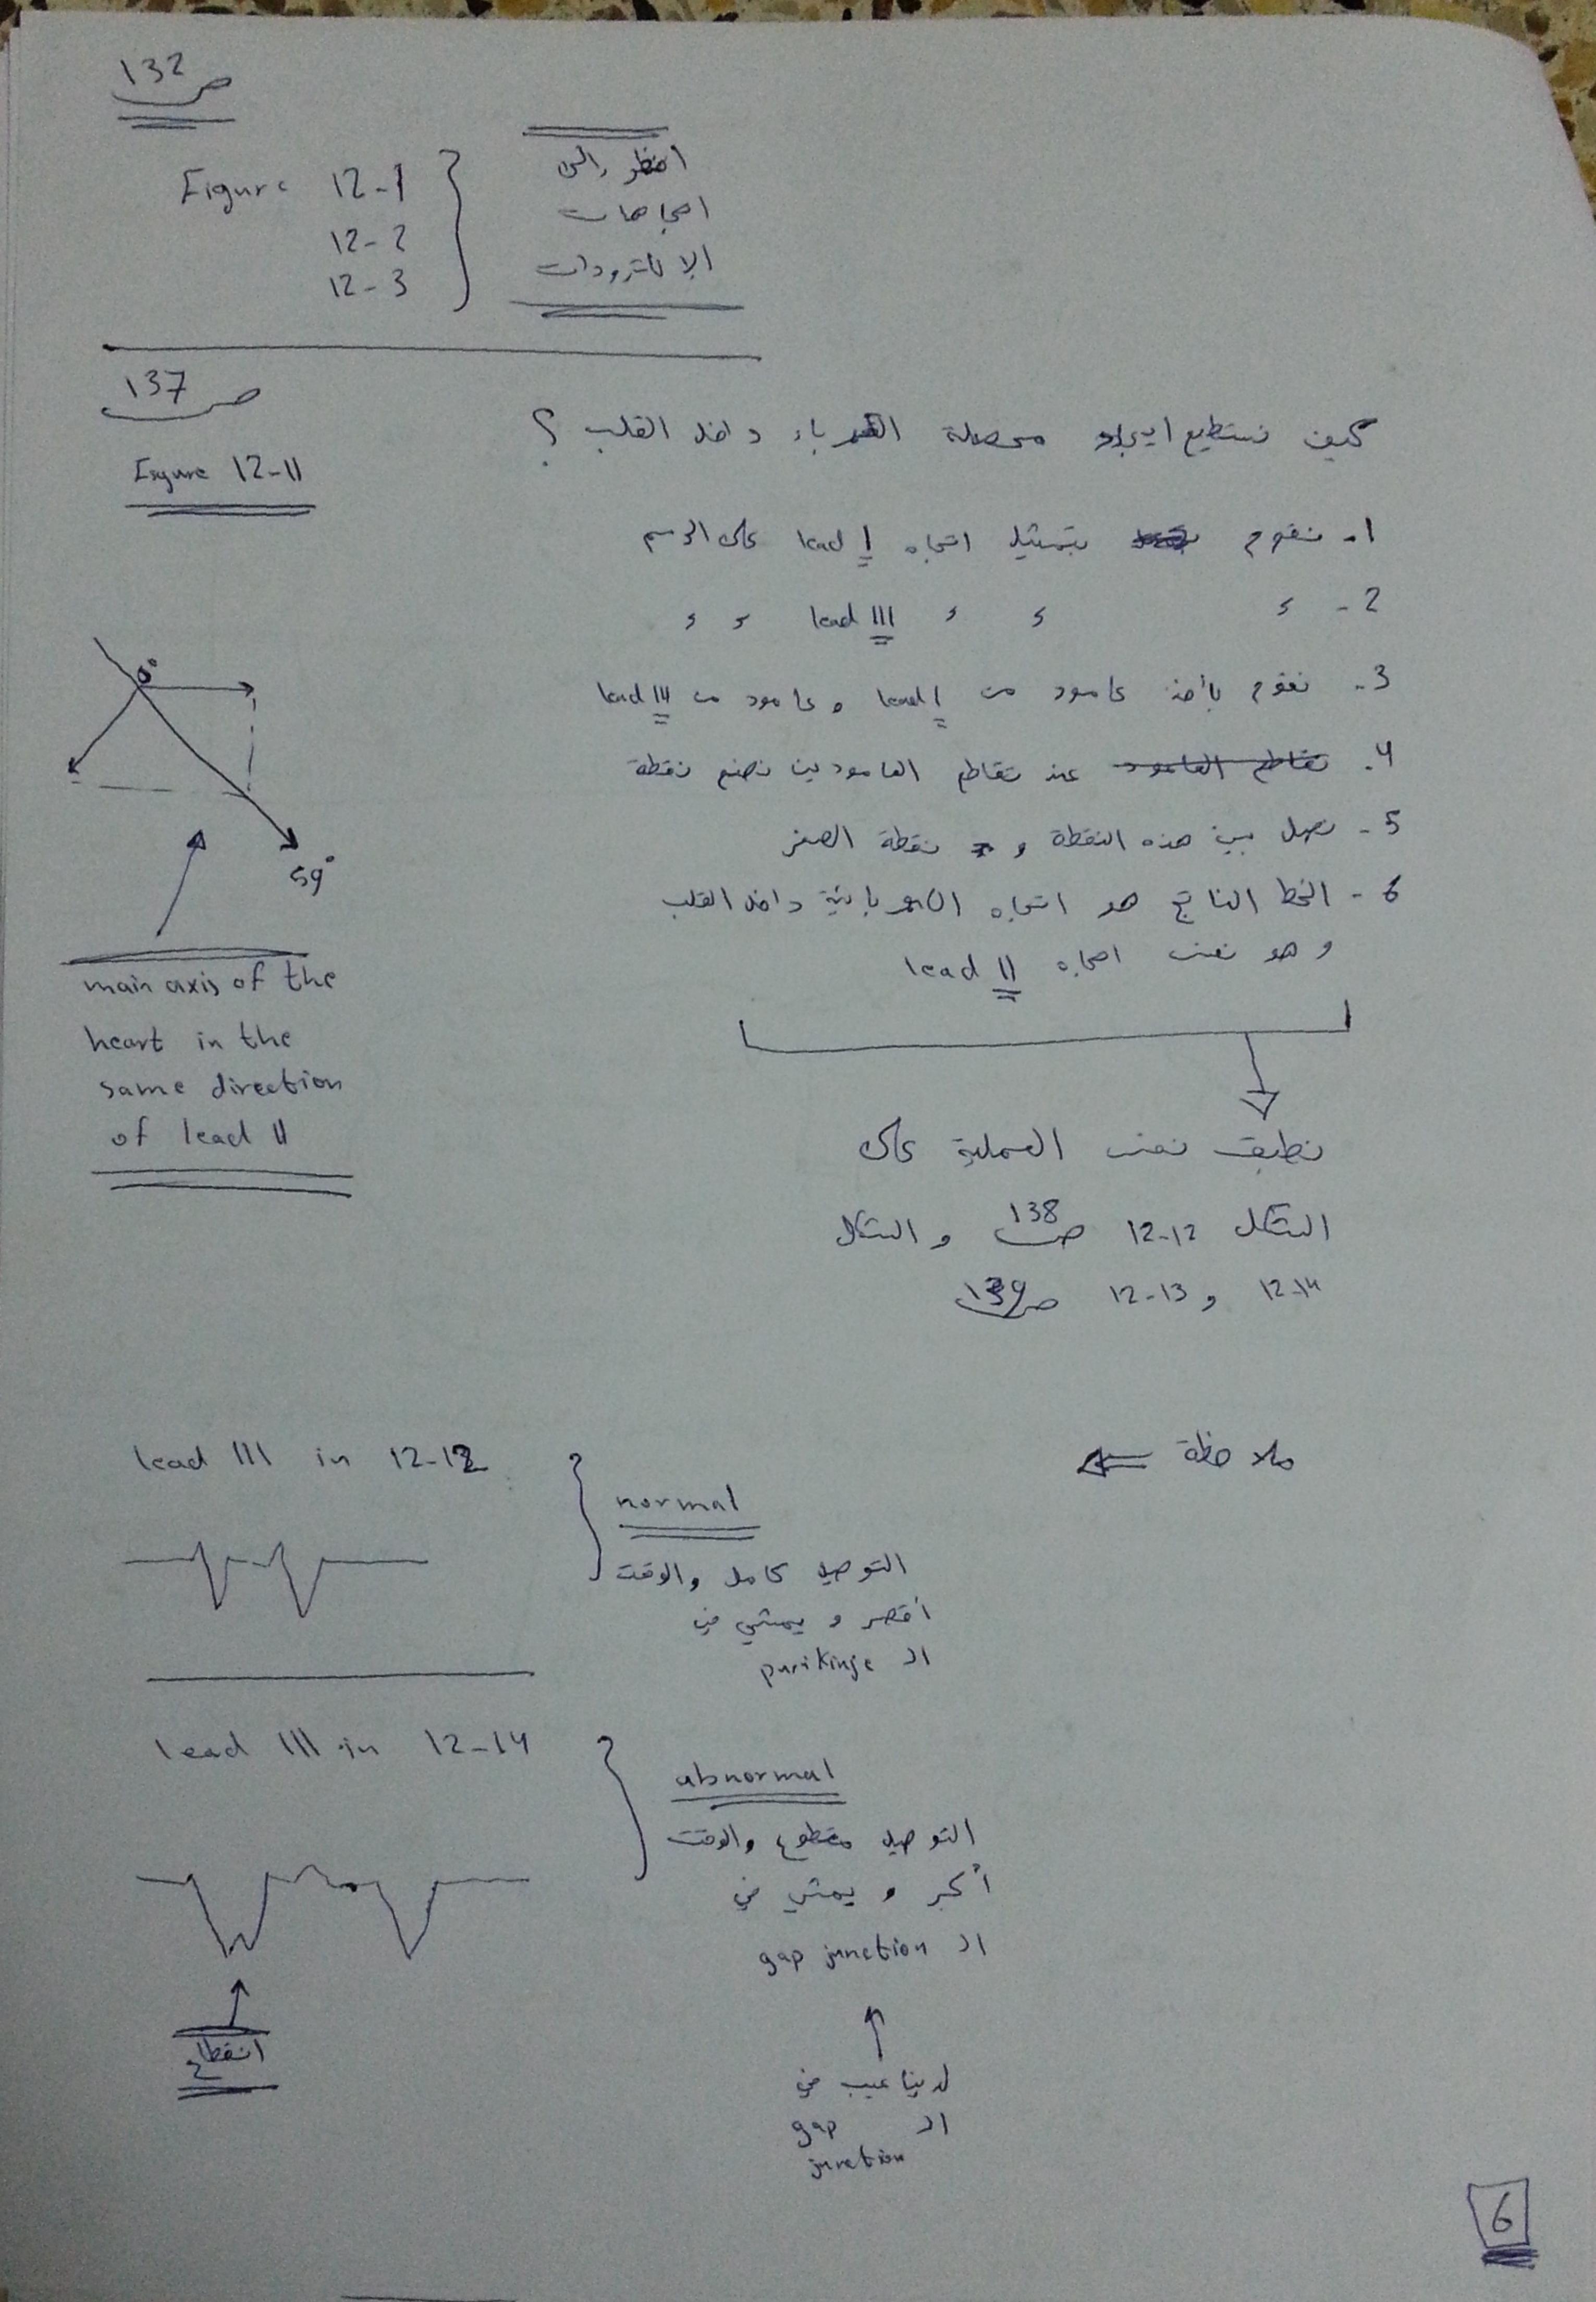 ص 132
Figure 12-1
12-2
12-3
انظر إلى
اتجاهات
الإلكترودات
ص 137
Figure 12-11
كيف نستطيع ايجاد محصلة الكهرباء داخل القلب ؟
1- نقوم بتمثيل اتجاه lead I على الرسم
2- ء ء ء lead III ء ء
3- نقوم بأخذ عامود من lead I و عامود من lead III
4- تقاطع العامود عند تقاطع العامودين نضع نقطة
5- نصل بين هذه النقطة و نقطة الصفر
6- الخط الناتج هو اتجاه الكهربائية داخل القلب
و هو نفس اتجاه lead II
0°
59°
main axis of the
heart in the
same direction
of lead II
نطبق نفس العملية على
الشكل 12-12 ص 138 و الشكل
12-14 و 12-13 ص 139
ملاحظة
lead III in 12-12
normal
التوصيل كامل والوقت
أقصر و يمشي في
ال purikinje
lead III in 12-14
abnormal
التوصيل مقطوع والوقت
أكبر و يمشي في
ال gap junction
انقطاع
لدينا عيب في
ال gap
junction
6